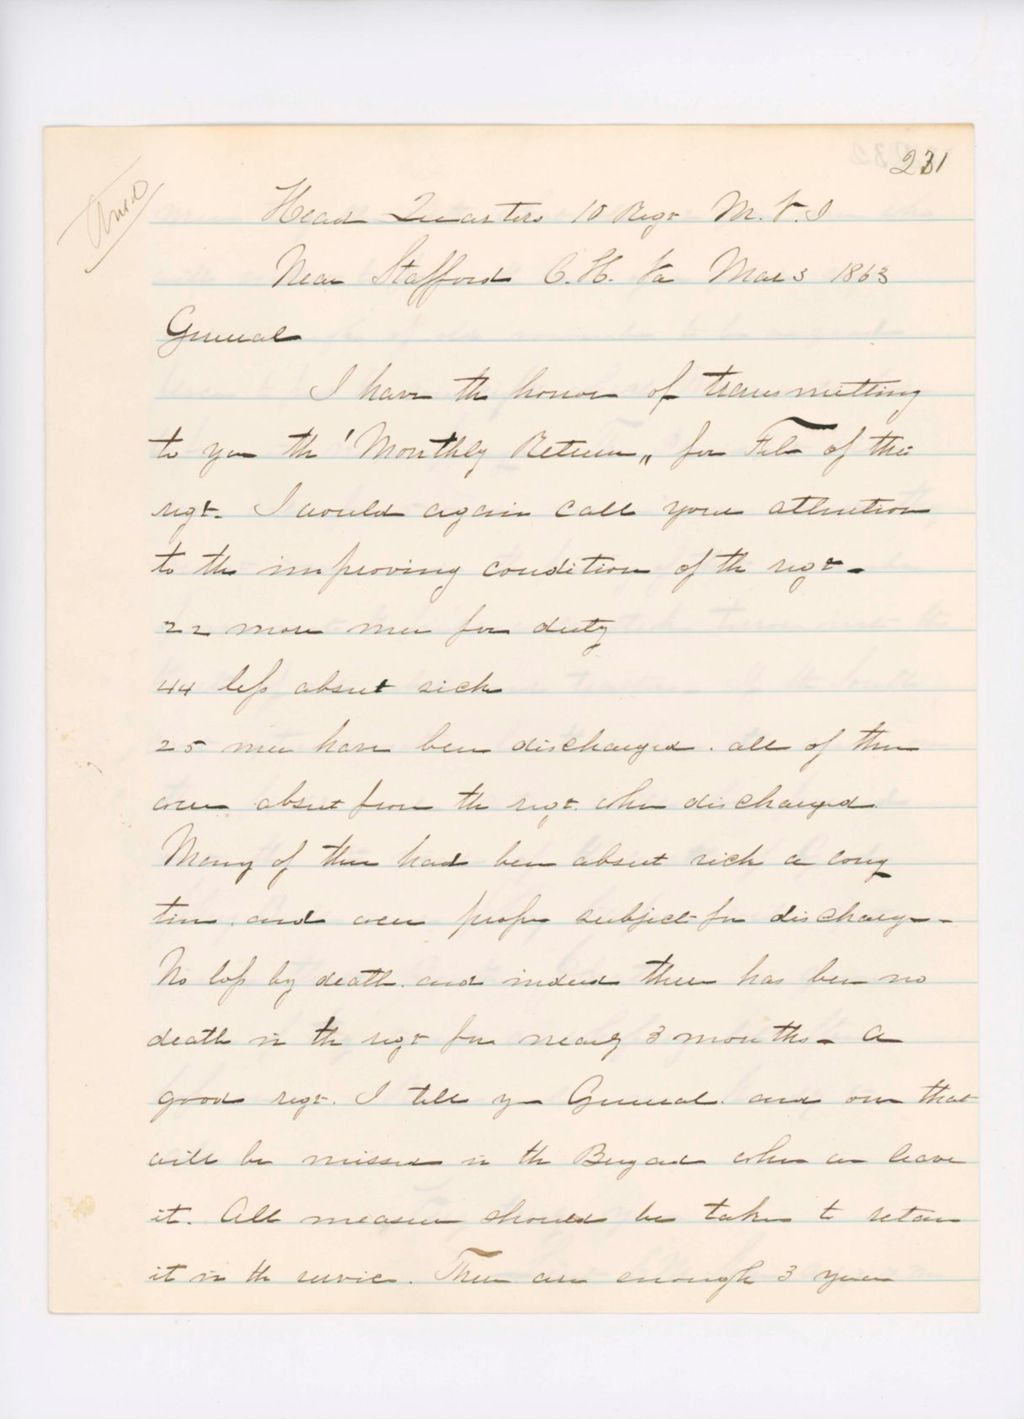 231
Head Quarters 10 Regt M.V.I
Near Stafford C.H. Va Mar 3 1863
General
I have the honor of transmitting
to you the "Monthly Return" for Feb of this
regt. I would again call your attention
to the improving condition of the regt-
22 more men for duty
44 less absent sick
25 men have been discharged. all of them
were absent from the regt. when discharged
Many of them had been absent sick a long
time. and were proper subject for discharge-
No loss by death. and indeed there has been no
death in the regt for nearly 3 months- A
good regt. I tell you General. and one that
will be missed in the Brigade when we leave
it. All measure should be taken to retain
it in the service. There are enough 3 years